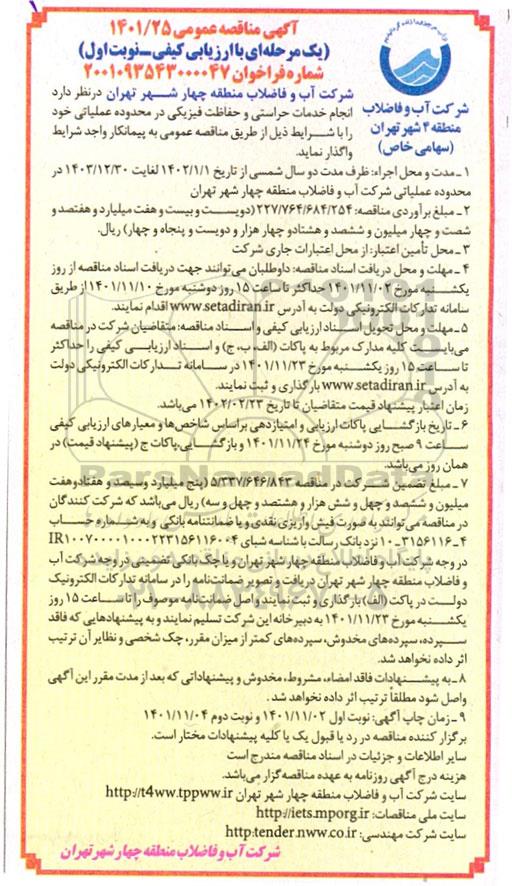 آگهی مناقصه عمومی ۱۴۰۱/۲۵
(یک مرحله‌ای با ارزیابی کیفی ـ نوبت اول)
شماره فراخوان ۲۰۰۱۰۹۳۵۴۳۰۰۰۰۴۷
شرکت آب و فاضلاب
منطقه ۴ شهر تهران
(سهامی خاص)
شرکت آب و فاضلاب منطقه چهار شهر تهران درنظر دارد
انجام خدمات حراستی و حفاظت فیزیکی در محدوده عملیاتی خود
را با شرایط ذیل از طریق مناقصه عمومی به پیمانکار واجد شرایط
واگذار نماید.
۱ ـ مدت و محل اجراء: ظرف مدت دو سال شمسی از تاریخ ۱۴۰۲/۱/۱ لغایت ۱۴۰۳/۱۲/۳۰ در
محدوده عملیاتی شرکت آب و فاضلاب منطقه چهار شهر تهران
۲ ـ مبلغ برآوردی مناقصه: ۲۲۷/۷۶۴/۶۸۴/۲۵۴ (دویست و بیست و هفت میلیارد و هفتصد و
شصت و چهار میلیون و ششصد و هشتاد و چهار هزار و دویست و پنجاه و چهار) ریال.
۳ ـ محل تأمین اعتبار: از محل اعتبارات جاری شرکت
۴ ـ مهلت و محل دریافت اسناد مناقصه: داوطلبان می‌توانند جهت دریافت اسناد مناقصه از روز
یکشنبه مورخ ۱۴۰۱/۱۱/۰۲ حداکثر تا ساعت ۱۵ روز دوشنبه مورخ ۱۴۰۱/۱۱/۱۰ از طریق
سامانه تدارکات الکترونیکی دولت به آدرس www.setadiran.ir اقدام نمایند.
۵ ـ مهلت و محل تحویل اسناد ارزیابی کیفی و اسناد مناقصه: متقاضیان شرکت در مناقصه
می‌بایست کلیه مدارک مربوط به پاکات (الف، ب، ج) و اسناد ارزیابی کیفی را حداکثر
تا ساعت ۱۵ روز یکشنبه مورخ ۱۴۰۱/۱۱/۲۳ در سامانه تدارکات الکترونیکی دولت
به آدرس www.setadiran.ir بارگذاری و ثبت نمایند.
زمان اعتبار پیشنهاد قیمت متقاضیان تا تاریخ ۱۴۰۲/۰۲/۲۳ می‌باشد.
۶ ـ تاریخ بازگشایی پاکات ارزیابی و امتیازدهی براساس شاخص‌ها و معیارهای ارزیابی کیفی
ساعت ۹ صبح روز دوشنبه مورخ ۱۴۰۱/۱۱/۲۴ و بازگشایی پاکات ج (پیشنهاد قیمت) در
همان روز می‌باشد.
۷ ـ مبلغ تضمین شرکت در مناقصه ۵/۳۳۷/۶۴۶/۸۴۳ (پنج میلیارد و سیصد و هفتادوهفت
میلیون و ششصد و چهل و شش هزار و هشتصد و چهل و سه) ریال می‌باشد که شرکت کنندگان
در مناقصه می‌توانند به صورت فیش واریزی نقدی و یا ضمانتنامه بانکی و به شماره حساب
۴ ـ ۳۱۵۶۱۱۶ ـ ۱۰ نزد بانک رسالت با شناسه شبای IR۱۰۰۷۰۰۰۰۱۰۰۰۲۲۳۱۵۶۱۱۶۰۰۴
در وجه شرکت آب و فاضلاب منطقه چهار شهر تهران و یا چک بانکی تضمینی در وجه شرکت آب
و فاضلاب منطقه چهار شهر تهران دریافت و تصویر ضمانت‌نامه را در سامانه تدارکات الکترونیک
دولت در پاکت (الف) بارگذاری و ثبت نمایند و اصل ضمانت‌نامه موصوف را تا ساعت ۱۵ روز
یکشنبه مورخ ۱۴۰۱/۱۱/۲۳ به دبیرخانه این شرکت تسلیم نمایند و به پیشنهادهایی که فاقد
سپرده، سپرده‌های مخدوش، سپرده‌های کمتر از میزان مقرر، چک شخصی و نظایر آن ترتیب
اثر داده نخواهد شد.
۸ ـ به پیشنهادات فاقد امضاء، مشروط، مخدوش و پیشنهاداتی که بعد از مدت مقرر این آگهی
واصل شود مطلقاً ترتیب اثر داده نخواهد شد.
۹ ـ زمان چاپ آگهی: نوبت اول ۱۴۰۱/۱۱/۰۲ و نوبت دوم ۱۴۰۱/۱۱/۰۴
برگزار کننده مناقصه در رد یا قبول یک یا کلیه پیشنهادات مختار است.
سایر اطلاعات و جزئیات در اسناد مناقصه مندرج است
هزینه درج آگهی روزنامه به عهده مناقصه‌گزار می‌باشد.
سایت شرکت آب و فاضلاب منطقه چهار شهر تهران http://t4ww.tppww.ir
سایت ملی مناقصات: http://iets.mporg.ir
سایت شرکت مهندسی: http:tender.nww.co.ir
شرکت آب و فاضلاب منطقه چهار شهر تهران